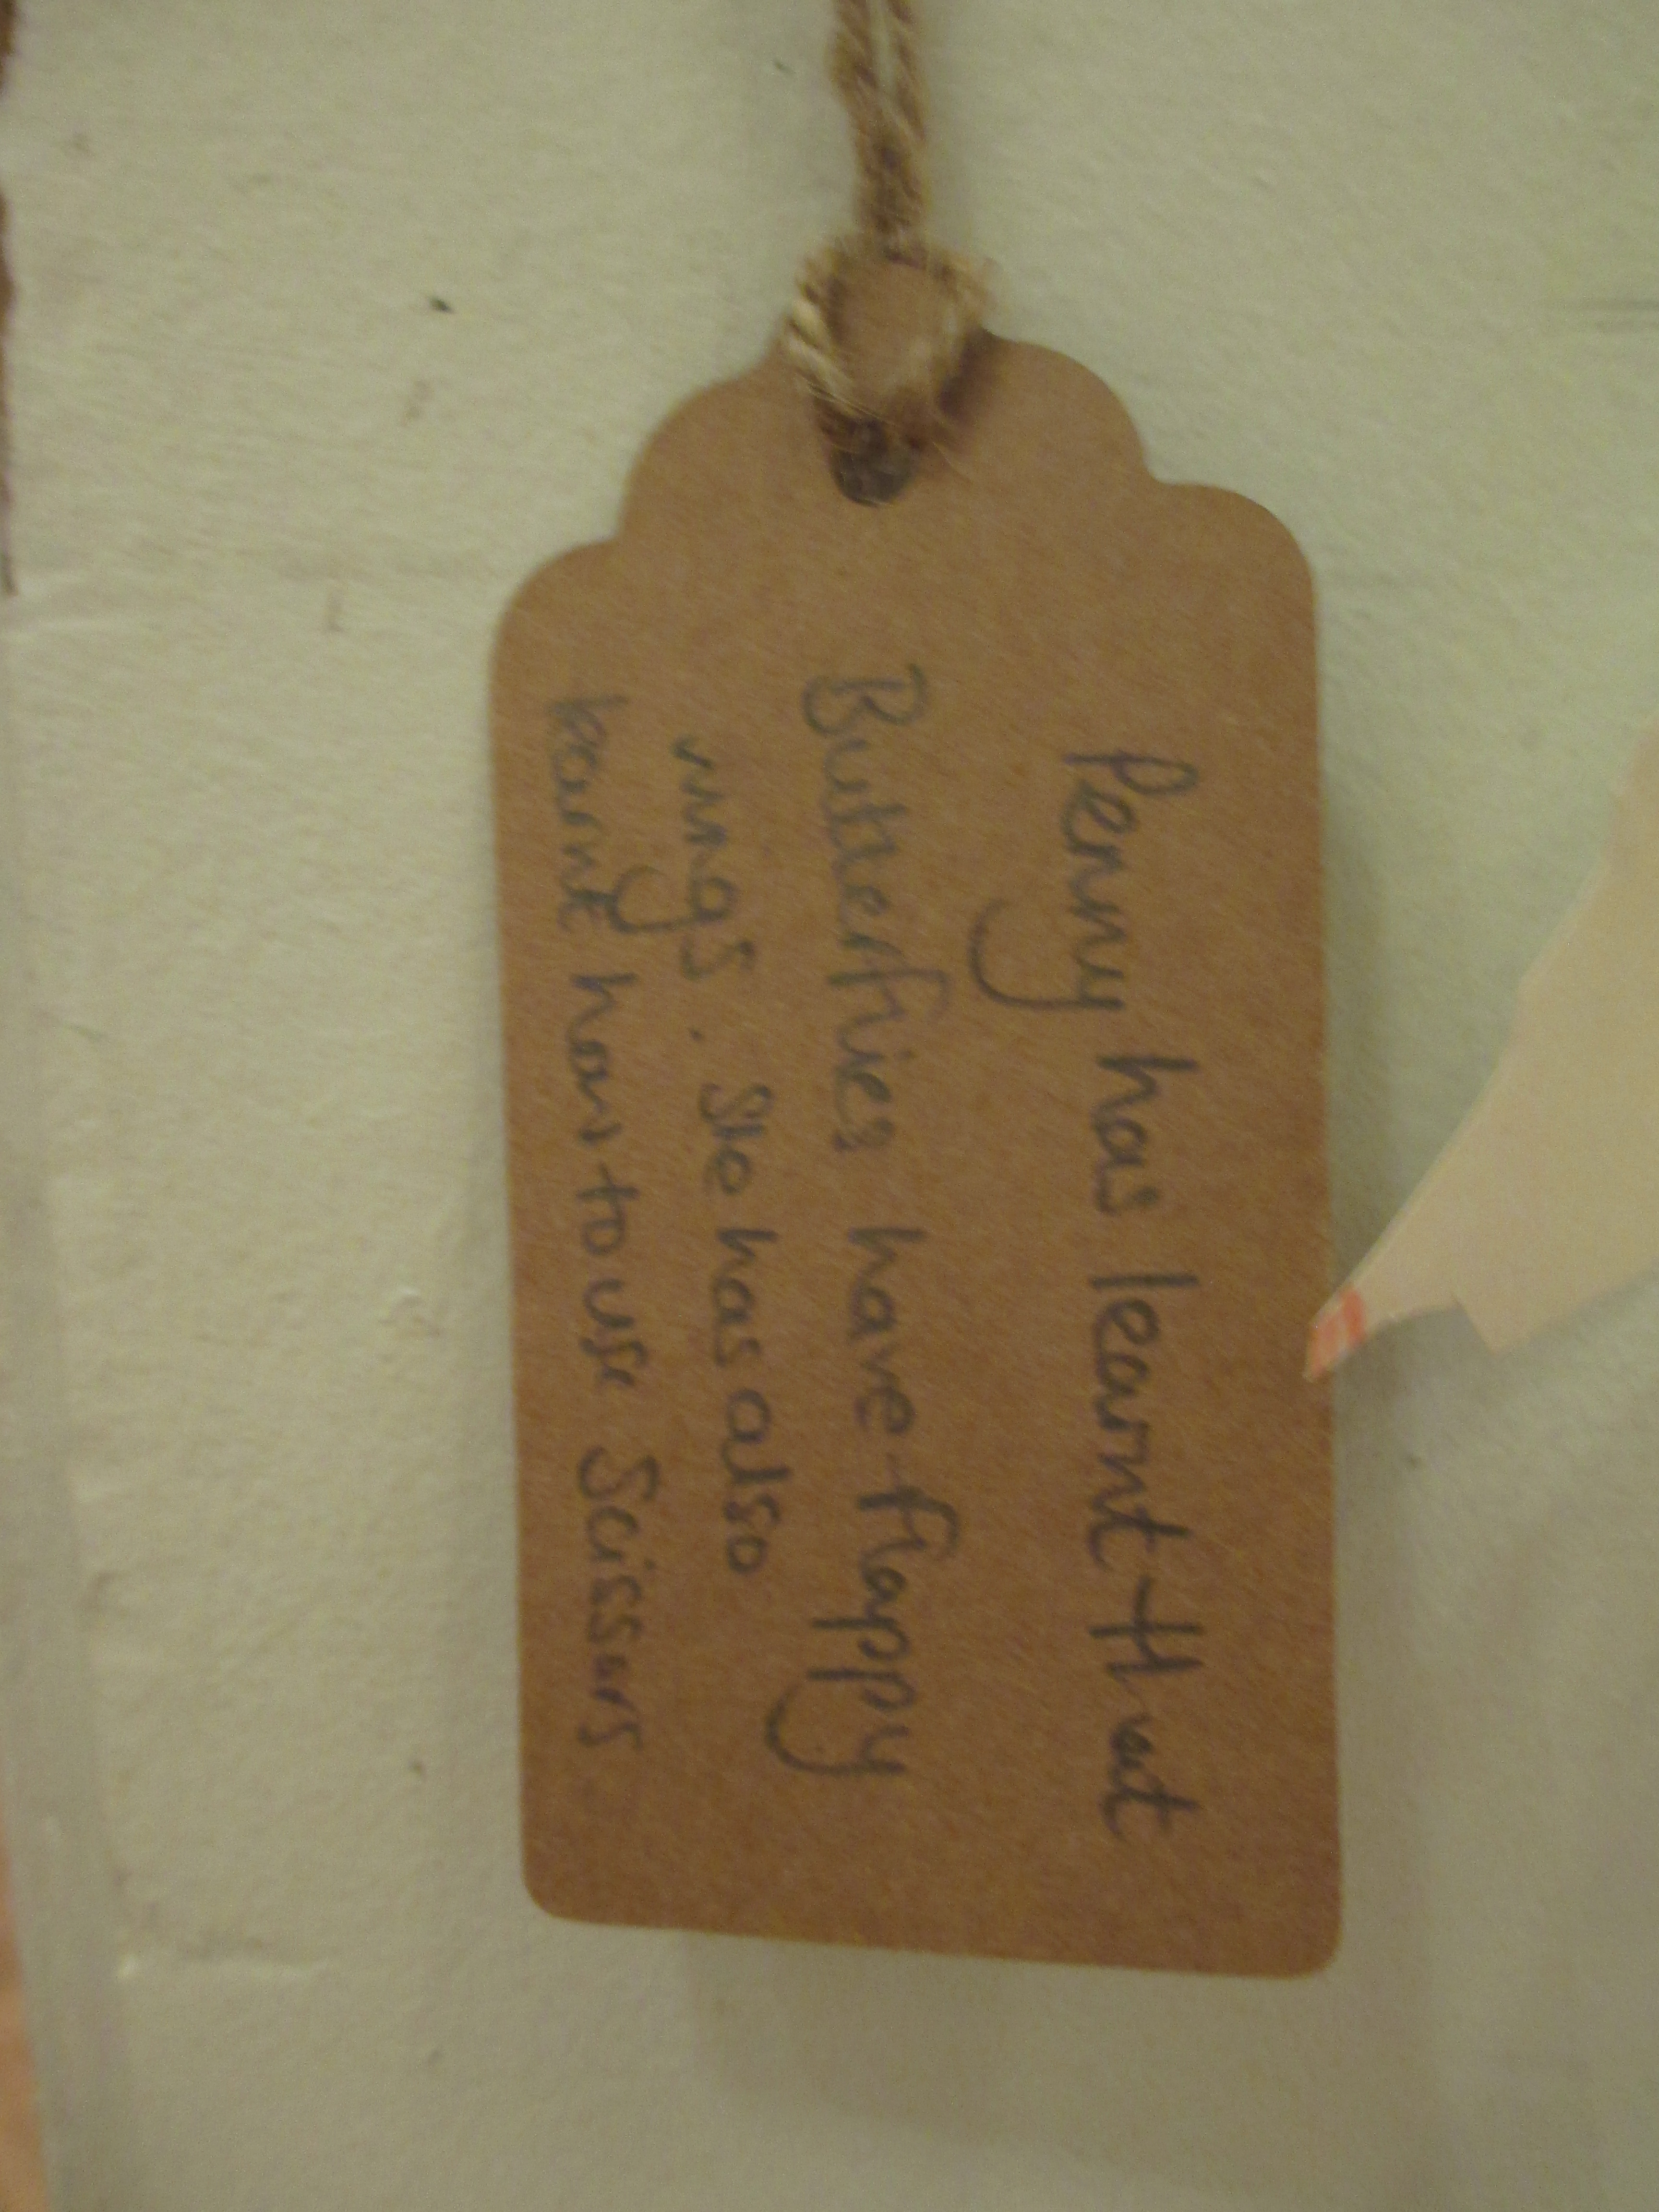 Penny has learnt that
Butterflies have flappy
wings. She has also
learnt how to use Scissors